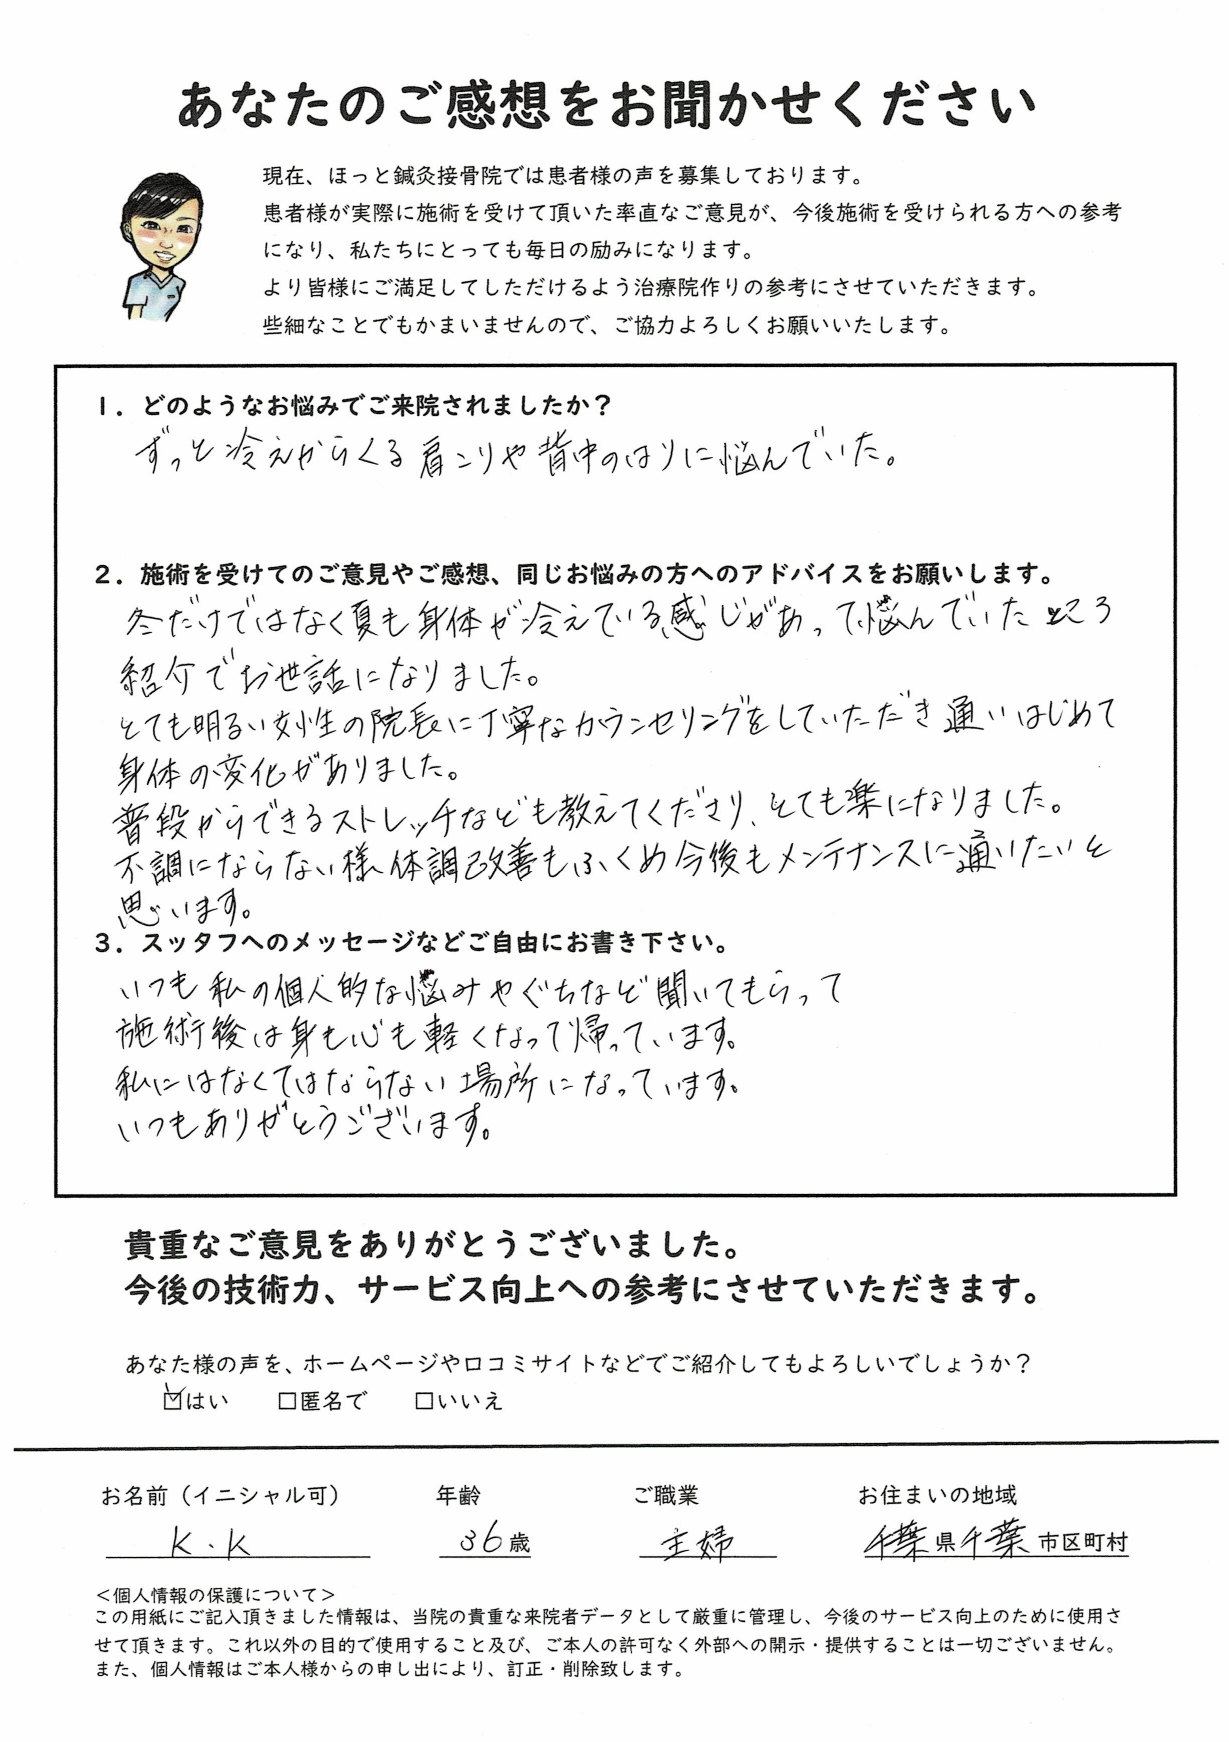 あなたのご感想をお聞かせください
現在、ほっと鍼灸接骨院では患者様の声を募集しております。
患者様が実際に施術を受けて頂いた率直なご意見が、今後施術を受けられる方への参考
になり、私たちにとっても毎日の励みになります。
より皆様にご満足してしただけるよう治療院作りの参考にさせていただきます。
些細なことでもかまいませんので、ご協力よろしくお願いいたします。
1．どのようなお悩みでご来院されましたか？
ずっと冷えからくる肩こりや背中のはりに悩んでいた。
2．施術を受けてのご意見やご感想、同じお悩みの方へのアドバイスをお願いします。
冬だけではなく夏も身体が冷えている感じがあって悩んでいたところ
紹介でお世話になりました。
とても明るい女性の院長に丁寧なカウンセリングをしていただき通いはじめて
身体の変化がありました。
普段からできるストレッチなども教えてくださり、とても楽になりました。
不調にならない様体調改善もふくめ今後もメンテナンスに通いたいと
思います。
3．スッタフへのメッセージなどご自由にお書き下さい。
いつも私の個人的な悩みやぐちなど聞いてもらって
施術後は身も心も軽くなって帰っています。
私にはなくてはならない場所になっています。
いつもありがとうございます。
貴重なご意見をありがとうございました。
今後の技術力、サービス向上への参考にさせていただきます。
あなた様の声を、ホームページや口コミサイトなどでご紹介してもよろしいでしょうか？
☑はい □匿名で □いいえ
お名前（イニシャル可） 年齢 ご職業 お住まいの地域
K.K 36歳 主婦 千葉県千葉市区町村
＜個人情報の保護について＞
この用紙にご記入頂きました情報は、当院の貴重な来院者データとして厳重に管理し、今後のサービス向上のために使用さ
せて頂きます。これ以外の目的で使用すること及び、ご本人の許可なく外部への開示・提供することは一切ございません。
また、個人情報はご本人様からの申し出により、訂正・削除致します。